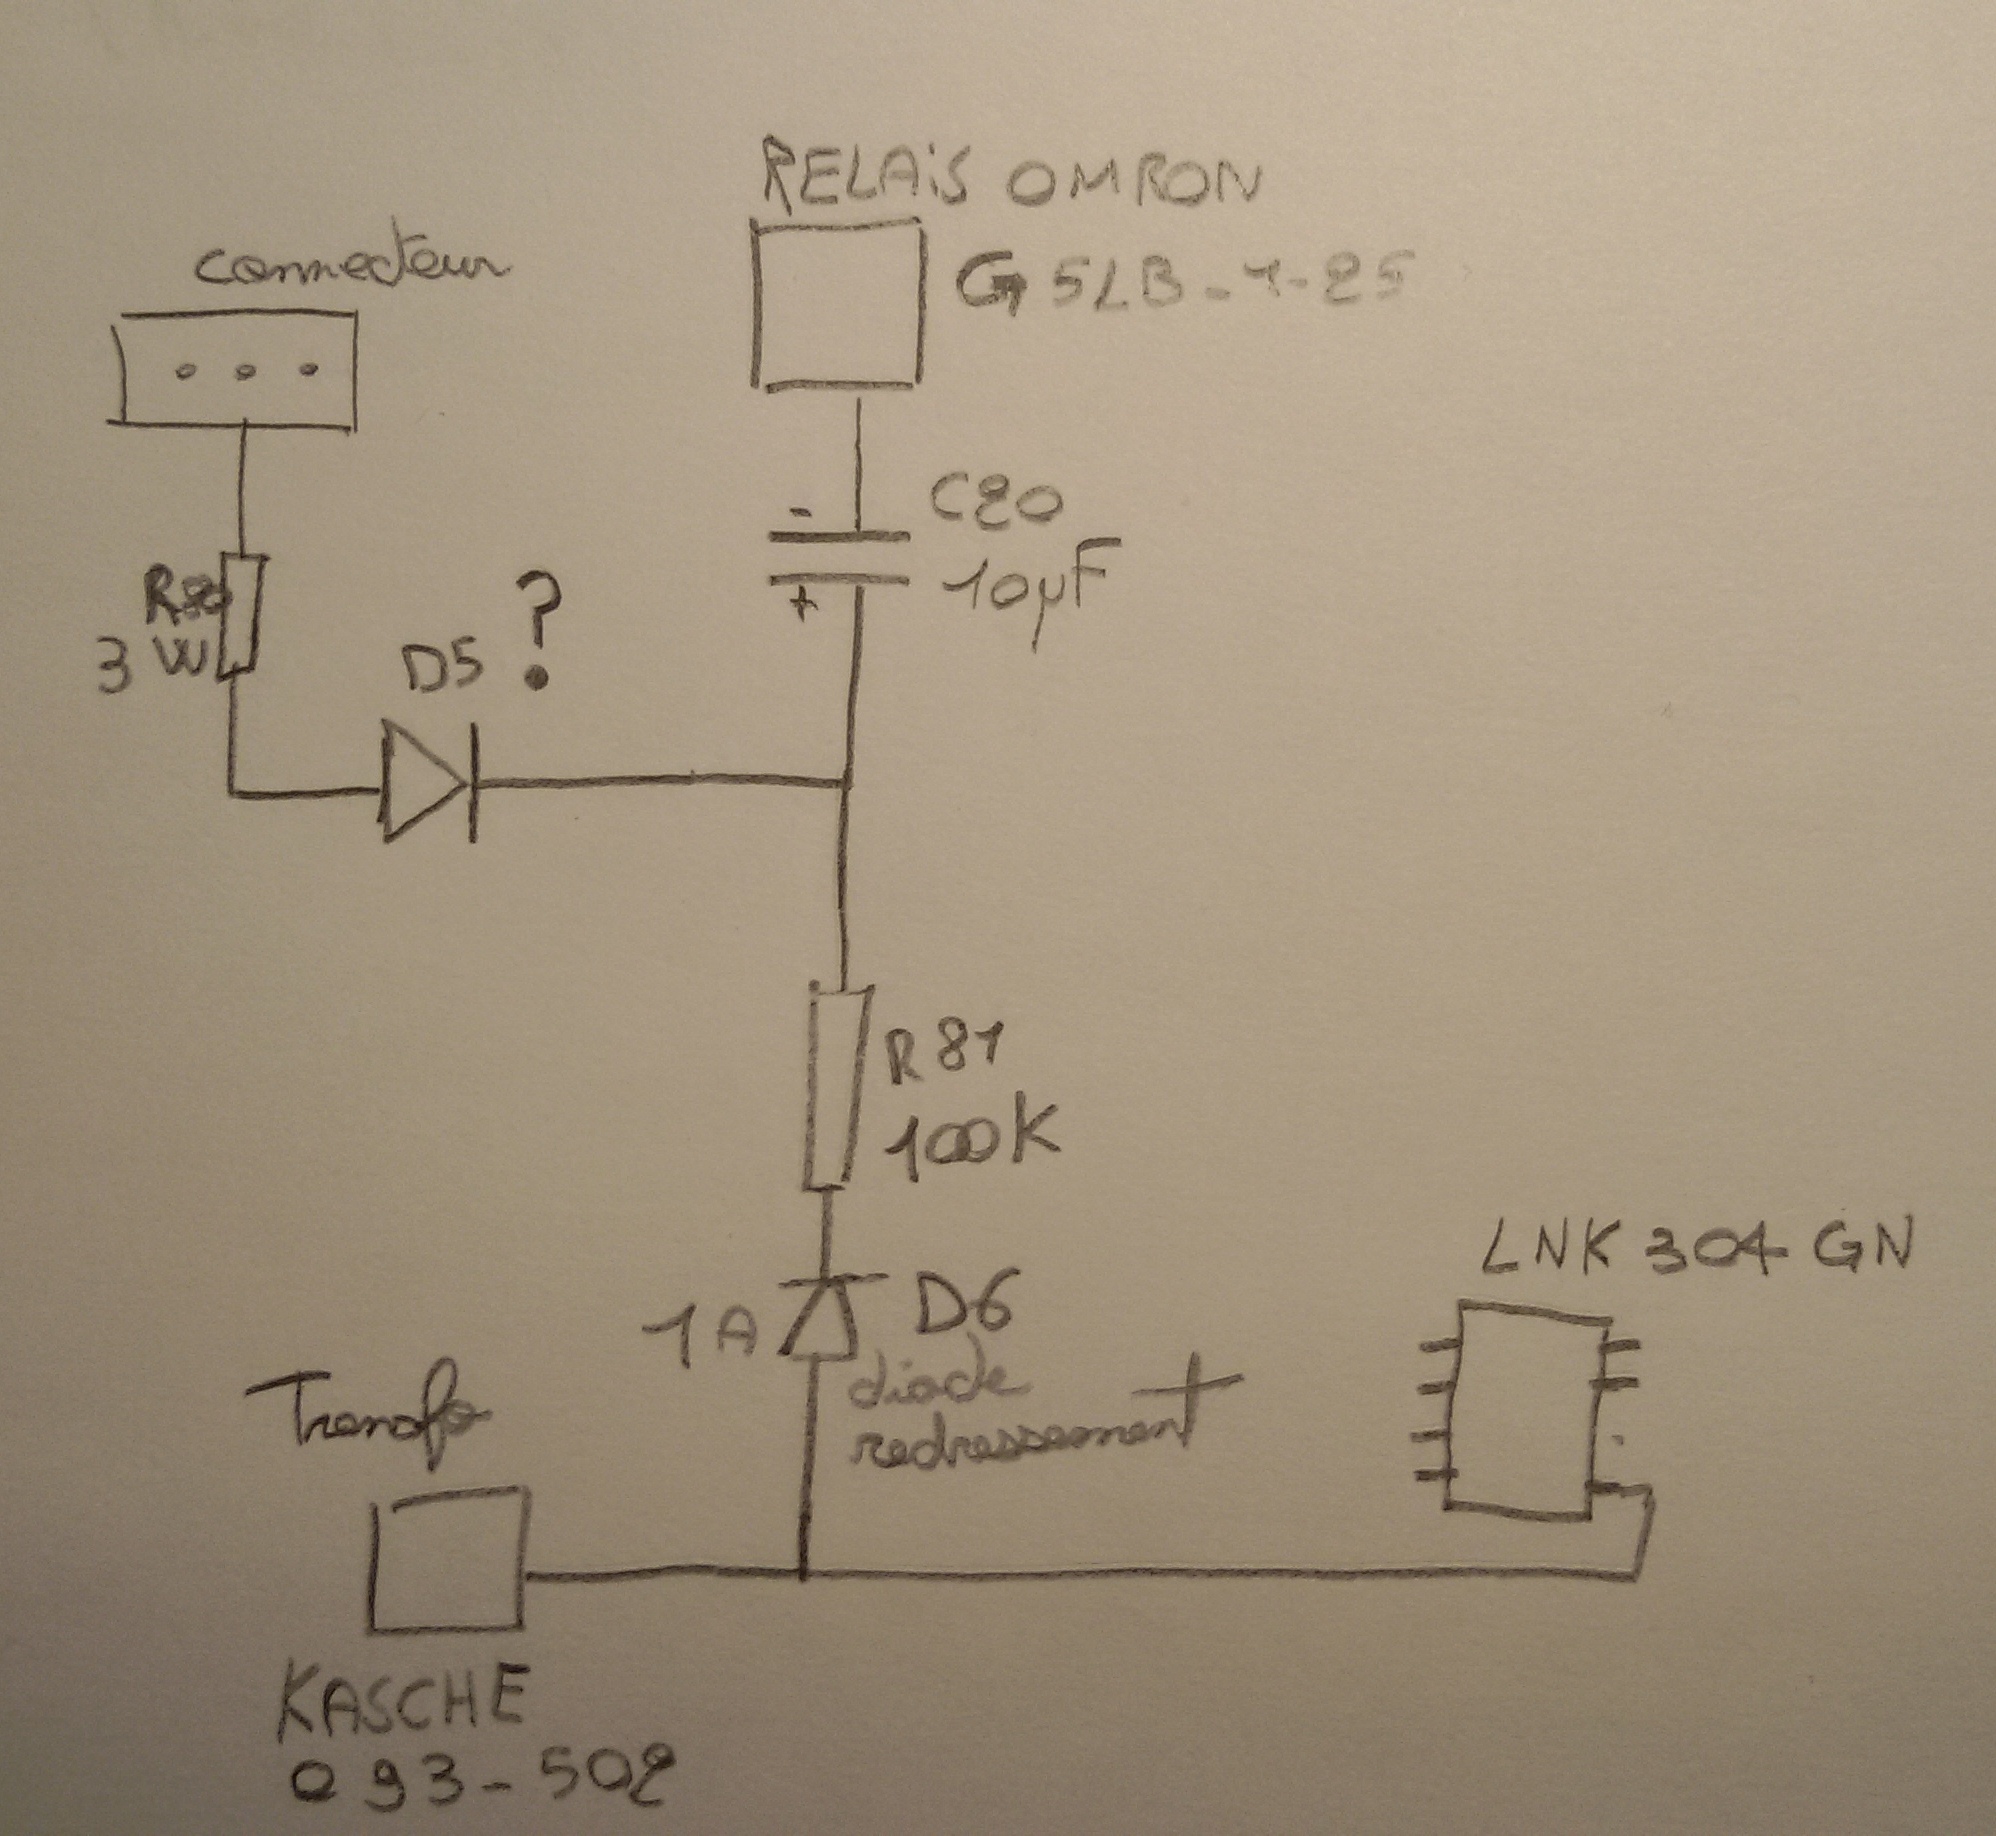 RELAiS OMRON
G5LB-1-25
connecteur
C20
10µF
-
+
R80
3 W
D5 ?
R81
100K
LNK 304 GN
1A
D6
diode
redressement
Transfo
KASCHE
093-502